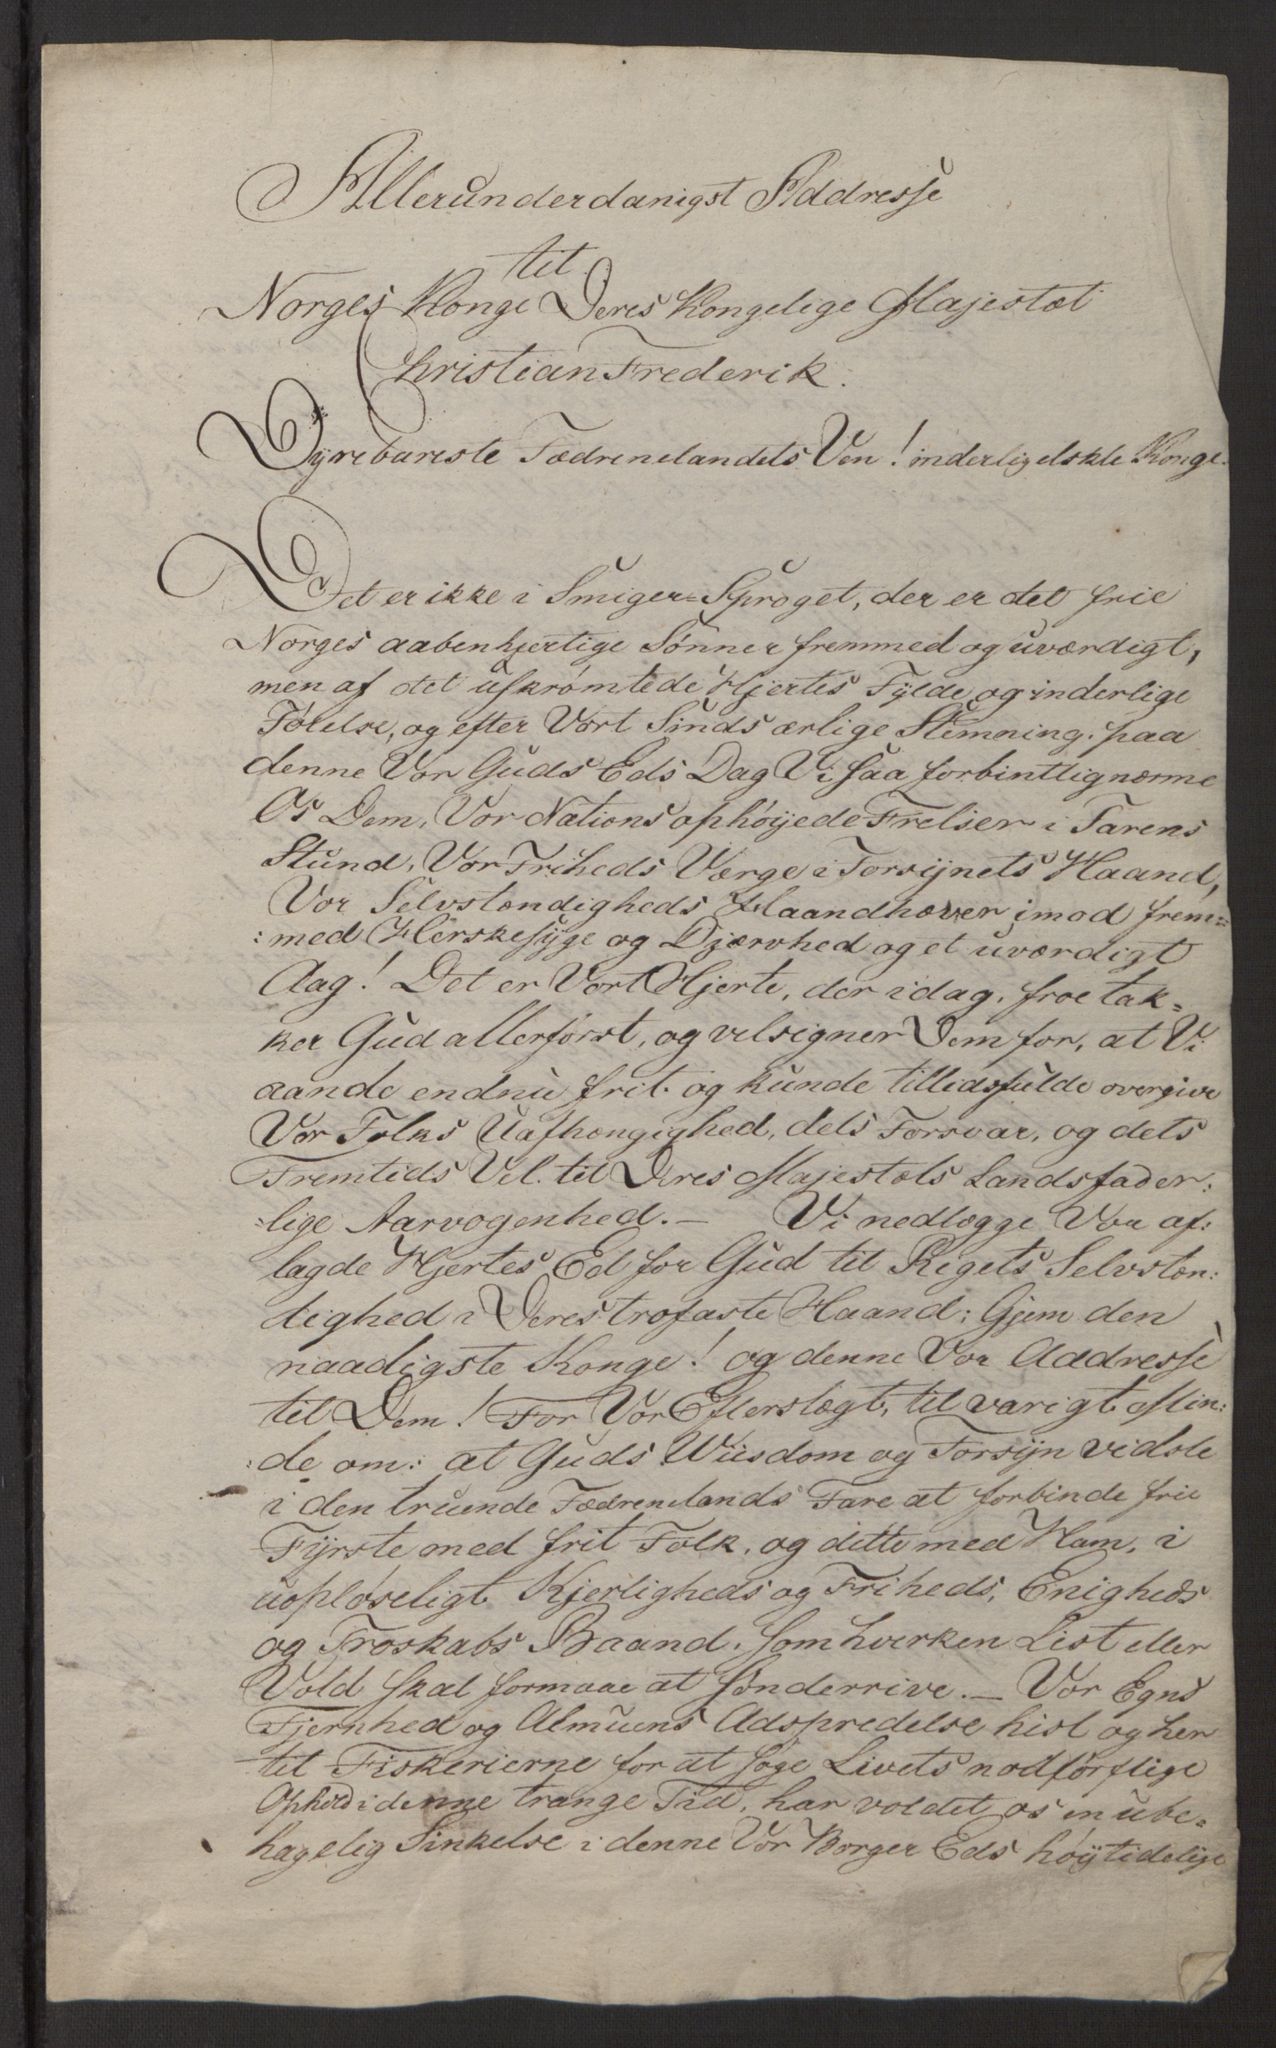 Allerunderdanigst Addresse
til
Norges Konge Deres Kongelige Majestæt
Christian Frederik.
Dyrebareste Fædrenelandets Ven! inderligelskte Konge.
Det er ikke i Smiger-Sproget, der er det frie
Norges aabenhjertige Sønner fremmed og uværdigt,
men af det uskrømtede Hjertes Fylde og inderlige
Følelse, og efter Vort Sinds ærlige Stemning. paa
denne Vor Guds Eds Dag Vi saa forbintlig nærme
Os Dem, Vor Nations ophøyede Frelser i Farens
Stund, Vor Friheds Værge i Forsynets Haand,
Vor Selvstændigheds Haandhæver imod frem=
:med Herskesyge og Djærvhed og et uværdigt
Aag! Det er Vort Hjerte, der idag, froe tak=
ker Gud allerførst, og velsigner Dem for, at Vi
aande endnu frit og kunde tillidsfulde overgive
Vor Folks Uafhængighed, dets Forsvar, og dets
Fremtids Vel. til Deres Majestæts Landsfader:
:lige Aarvogenhed. — Vi nedlægge Vor af:
lagde Hjertes Ed for Gud til Rigets Selvstæn:
tighed i Deres trofaste Haand: Gjem den
naadigste Konge! og denne Vor Addresse
til Dem! For Vor Efterslægt, til varigt Min:
:de om: at Guds Viisdom og Forsyn vidste
i den truende Fædrenelands Fare at forbinde frie
Fyrste med frit Folk, og dette med Ham, i
uopløseligt Kjerligheds og Friheds, Enigheds
og Troskabs Baand. som hverken List eller
Vold skal formaae at sønderrive. — Vor Egns
Fjernhed og Almuens Adspredelse hist og her
til Fiskerierne for at søge Livets nødtørftige
Ophold i denne trange Tid, har voldet os en ube=
hagelig Sinkelse i denne Vor Borger Eds høytidelige